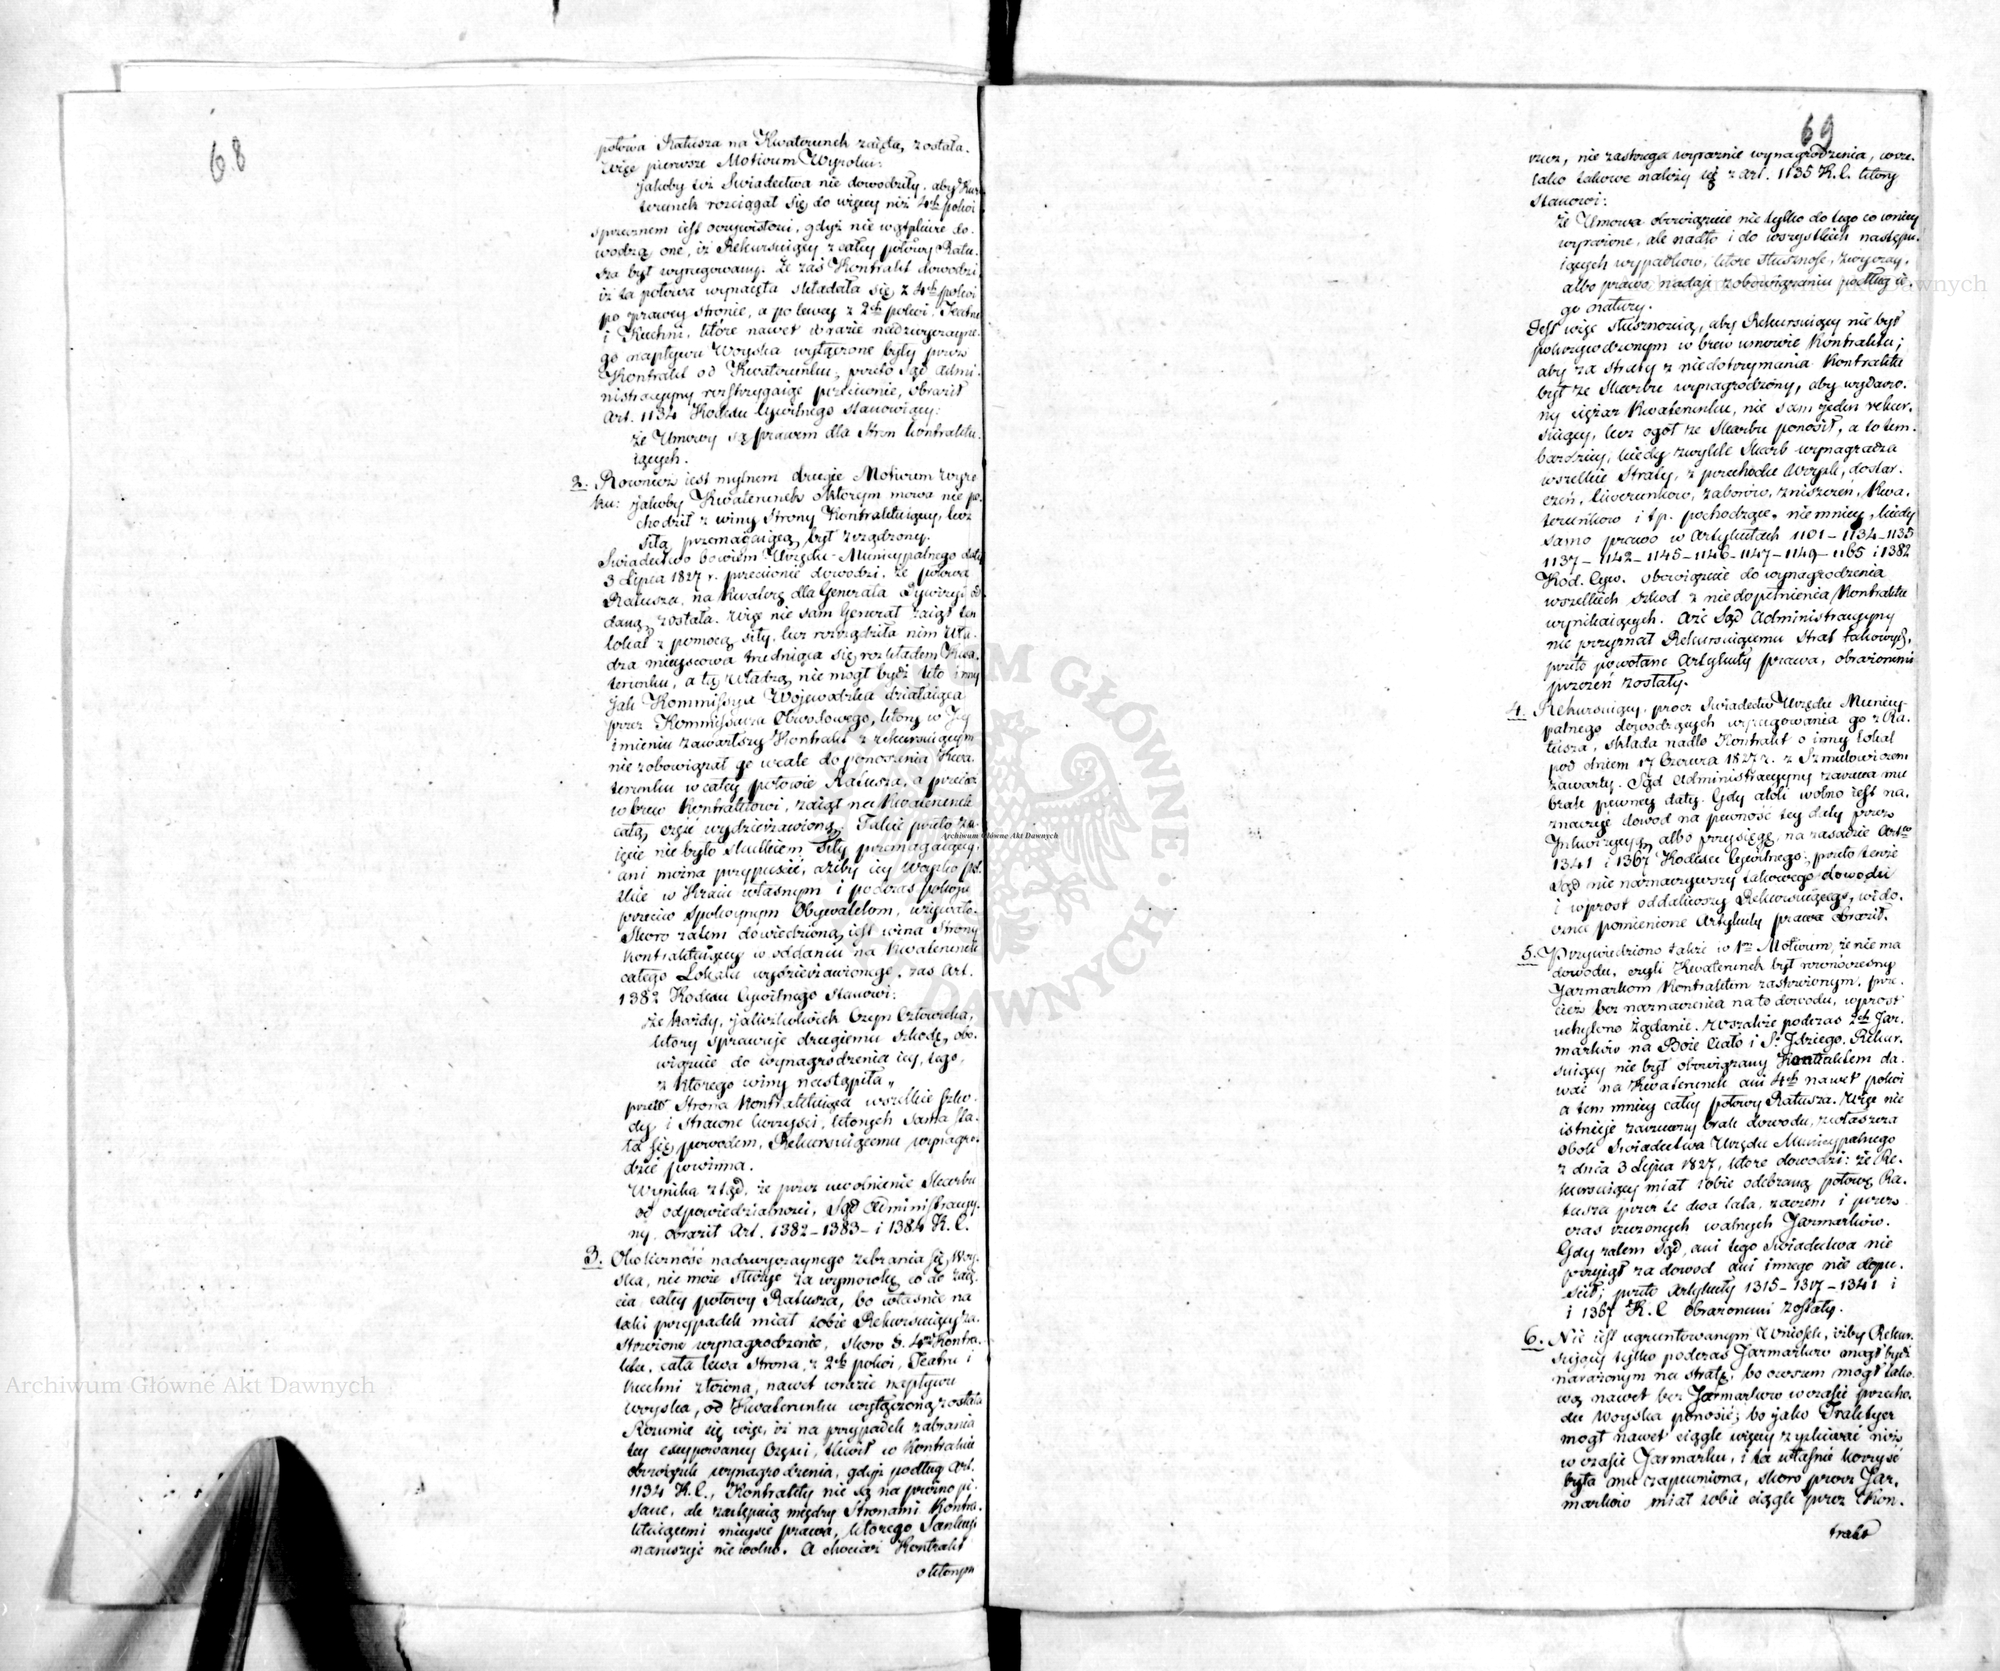 68
połowa Ratusza na Kwaterunek zaiętą została.
Więc pierwsze Motivum Wyroku:
jakoby też Swiadectwa nie dowodziły, aby Kwa
terunek rozciągał się do więcey niż 4ch pokoi
sprzecznem iest oczywistości, gdyż nie wątpliwie do-
wodzą one, iż Rekursuiący z całey połowy Ratu-
sza był wyrugowany. Że zaś Kontrakt dowodzi,
iż ta połowa wynaięta składała się z 4ch pokoi
po prawey stronie, a po lewey z 2ch pokoi, Teatru
i Kuchni, które nawet w razie nadzwyczayne-
go napływu Woyska wyłączone były przez
Kontrakt od Kwaterunku; przeto Sąd Admi-
nistracyiny rozstrzygaiąc przeciwnie, obraził
Art. 1134 Kodexu Cywilnego stanowiący:
że Umowy są prawem dla Stron kontraktu-
iących.
2. Rownież iest mylnem drugie Motivum wyro
ku: jakoby Kwaterunek o którym mowa nie po-
chodził z winy Strony Kontraktuiącey, lecz
siłą przemagaiącą był zrządzony.
Swiadectwo bowiem Urzędu Municypalnego daty
3 Lipca 1827 r. przeciwnie dowodzi, że połowa
Ratusza, na kwaterę dla Generała Żywirzyc od
daną została. Więc nie sam Generał zaiął ten
lokal z pomocą siły, lecz rozrządziła nim Wła-
dza mieyscowa trudniąca się rozkładem Kwa-
terunku, a tą władzą nie mogł bydź kto inny
jak Kommissya Woiewodzka działaiąca
przez Kommissarza Obwodowego, który w Jey
imieniu zawarłszy Kontrakt z rekursuiącym
nie zobowiązał go wcale do ponoszenia Kwa-
terunku w całey połowie Ratusza, a przecież
wbrew Kontraktowi, zaiął na Kwaterunek
całą część wydzierżawioną. Takie przeto za-
ięcie nie było skutkiem siły przemagaiącey,
ani można przypuścić, ażeby iey Woysko Pol-
skie w Kraiu własnym i podczas pokoju
przeciw spokoynym Obywatelom, używało.
Skoro zatem dowiedzioną iest wina Strony
kontraktuiącey w oddaniu na Kwaterunek
całego Lokalu wydzierżawionego, zas Art.
1382 Kodexu Cywilnego Stanowi:
że każdy, jakiżkolwiek Czyn Człowieka,
który sprawuje drugiemu szkodę, obo-
wiązuie do wynagrodzenia iey, tego,
z którego winy nastąpiła„
przeto Strona Kontraktuiąca wszelkie szko-
dy i stracone korzyści, których sama sta-
ła się powodem, Rekursuiącemu wynagro-
dzić powinna.
Wynika ztąd, że przez uwolnienie Skarbu
od odpowiedzialności, Sąd Administracyy-
ny obraził Art. 1382–1383– i 1384 K. C.
3. Okoliczność nadzwyczaynego zebrania się Woy-
ska, nie może służyć za wymowkę co do zaię-
cia całey połowy Ratusza, bo własnie na
taki przypadek miał sobie Rekursuiący za-
strzeżone wynagrodzenie, skoro §. 4ty Kontra-
ktu, cała lewa Strona, z 2ch pokoi, Teatru i
kuchni złożona, nawet wrazie napływu
woyska, od Kwaterunku wyłączoną została
Rozumie się więc, iż na przypadek zabrania
tey excypowaney Części, tkwił w Kontrakcie
obowiązek wynagrodzenia, gdyż podług Art.
1134 K. C., Kontrakty nie są na prożno pi-
sane, ale zastępuią między Stronami Kontra-
ktuiącemi mieysce prawa, którego Sankcyi
naruszyć nie wolno. A chociaż Kontrakt
o którym
69
rzecz, nie zastrzega wyraznie wynagrodzenia, wsze-
lako takowe należy się z Art. 1135 K. C. który
stanowi:
że Umowa obowiązuie nie tylko do tego co w niey
wyrażone, ale nadto i do wszystkich następu-
iących wypadkow, które słuszność, zwyczay,
albo prawo, nadaje zobowiązaniu podług ie-
go natury.
Jest więc słusznością, aby Rekursuiący nie był
pokrzywdzonym wbrew umowie Kontraktu;
aby za straty z niedotrzymania Kontraktu
był ze Skarbu wynagrodzony, aby wydarzo-
ny ciężar Kwaterunku, nie sam jeden rekur-
suiący, lecz ogoł ze Skarbu ponosił, a to tem-
bardziey, kiedy zwykle Skarb wynagradza
wszelkie straty, z przechodu Woysk, dostar-
czeń, liwerunkow, zaborów, zniszczeń, Kwa-
terunkow i t.p. pochodzące, niemniey, kiedy
samo prawo w Artykułach 1101–1134–1135
1137–1142–1145–1146–1147–1149–1165 i 1382
Kod. Cyw. obowiązuie do wynagrodzenia
wszelkich szkod z niedopełnienia Kontraktu
wynikaiących. Ale Sąd Administracyiny
nie przyznał Rekursuiącemu strat takowych,
przeto powołane Artykuły prawa, obrażonemi
przezeń zostały.
4. Rekursuiący, procz Swiadectw Urzędu Municy-
palnego dowodzących wyrugowania go z Ra-
tusza, składa nadto Kontrakt o inny lokal
pod dniem 17 Czerwca 1827 r. z Szmulowiczem
zawarty. Sąd Administracyiny zarzuca mu
brak pewney daty. Gdy atoli wolno iest na-
znaczyć dowod na pewność tey daty przez
Inkwizycyą albo przysięgę, na zasadzie Artłu
1341 i 1367 Kodexu Cywilnego; przeto tenże
Sąd nie naznaczywszy takowego dowodu
i wprost oddaliwszy Rekursuiącego, wido-
cznie pomienione Artykuły prawa obraził.
5. Przywiedziono także w 1m Motivum, że nie ma
dowodu, czyli Kwaterunek był rownoczesny
Jarmarkom Kontraktem zastrzeżonym, prze-
cież bez naznaczenia na to dowodu, wprost
uchylono żądanie. Wszakże podczas 2ch Jar-
markow na Boże Ciało i Sgo Idziego, Rekur-
suiący nie był obowiązany Kontraktem da-
wać na Kwaterunek ani 4ch nawet pokoi
a tem mniey całey połowy Ratusza. Więc nie
istnieje zarzucany brak dowodu, zwłaszcza
obok Swiadectwa Urzędu Municypalnego
z dnia 3 Lipca 1827, które dowodzi: że Re-
kursuiący miał sobie odebraną połowę Ra-
tusza przez te dwa lata, zaczem i przez
czas rzeczonych walnych Jarmarków.
Gdy zatem Sąd, ani tego Swiadectwa nie
przyiął za dowod ani innego nie dopu-
scił; przeto Artykuły 1315–1317–1341 i
i 1367 K. C obrażonemi zostały.
6. Nie iest ugruntowanym Wniosek, iżby Rekur-
suiący tylko podczas Jarmarkow mogł bydź
narażonym na stratę, bo owszem mogł tako-
wą nawet bez Jarmarkow w czasie przecho-
du Woyska ponosić; bo jako Traktyer
mogł nawet ciągle więcey zyskiwać niż
w czasie Jarmarku, i ta właśnie korzyść
była mu zapewniona, skoro procz Jar-
markow miał sobie ciągle przez Kon-
trakt
Archiwum Główne Akt Dawnych